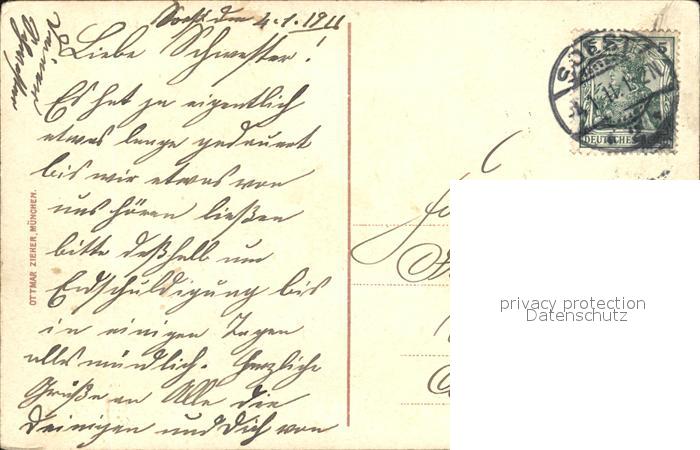 Soest den 4.1.1911
Liebe Schwester!
Es hat ja eigentlich
etwas lange gedauert
bis wir etwas von
uns hören ließen
bitte deßhalb um
Endschuldigung bis
in einigen Tagen
alles mündlich. Herzliche
Grüße an Alle die
Deinigen und Dich von
Deinem
OTTMAR ZIEHER, MÜNCHEN.
SOEST
5
DEUTSCHES REICH
privacy protection
Datenschutz